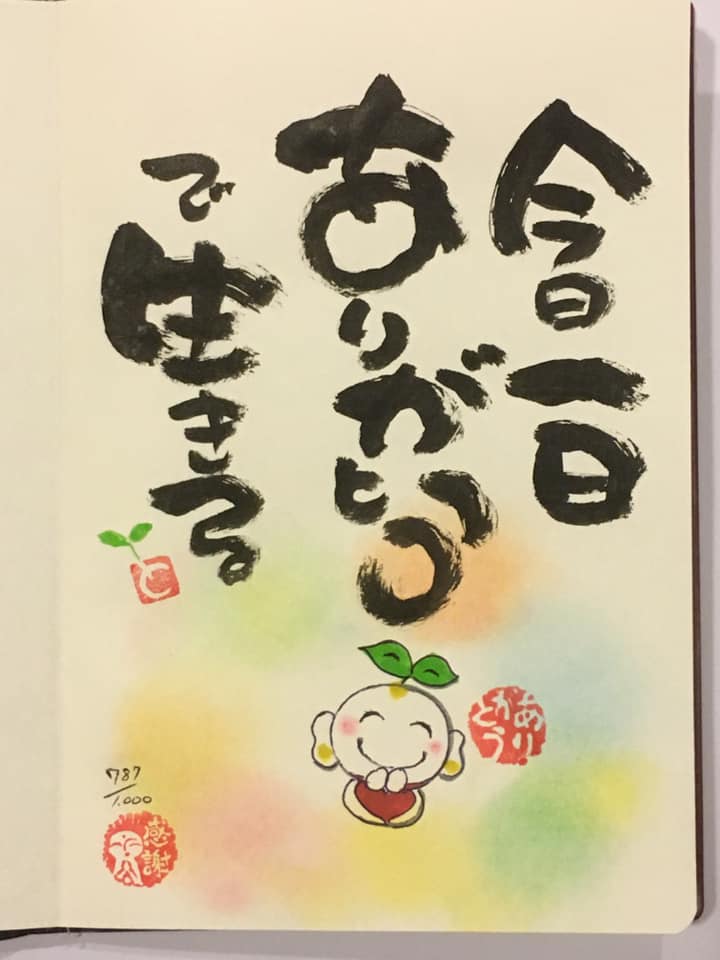 今日一日
ありがとう
で生きる
と
ありがとう
787/1.000
感謝